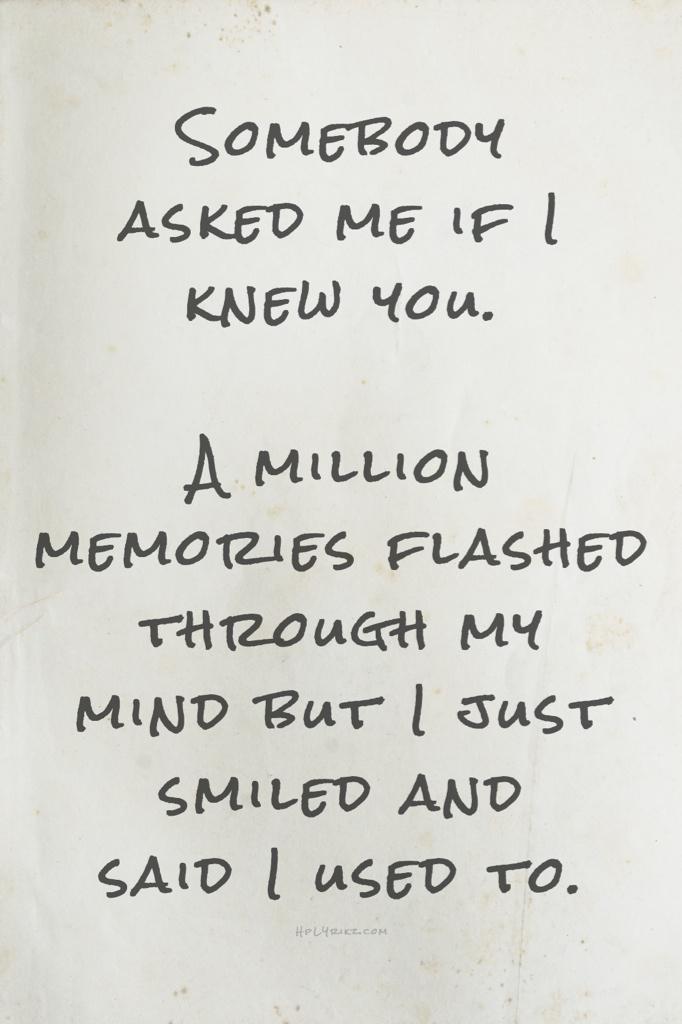 SOMEBODY
ASKED ME IF I
KNEW YOU.
A MILLION
MEMORIES FLASHED
THROUGH MY
MIND BUT I JUST
SMILED AND
SAID I USED TO.
HPLYRIKZ.COM